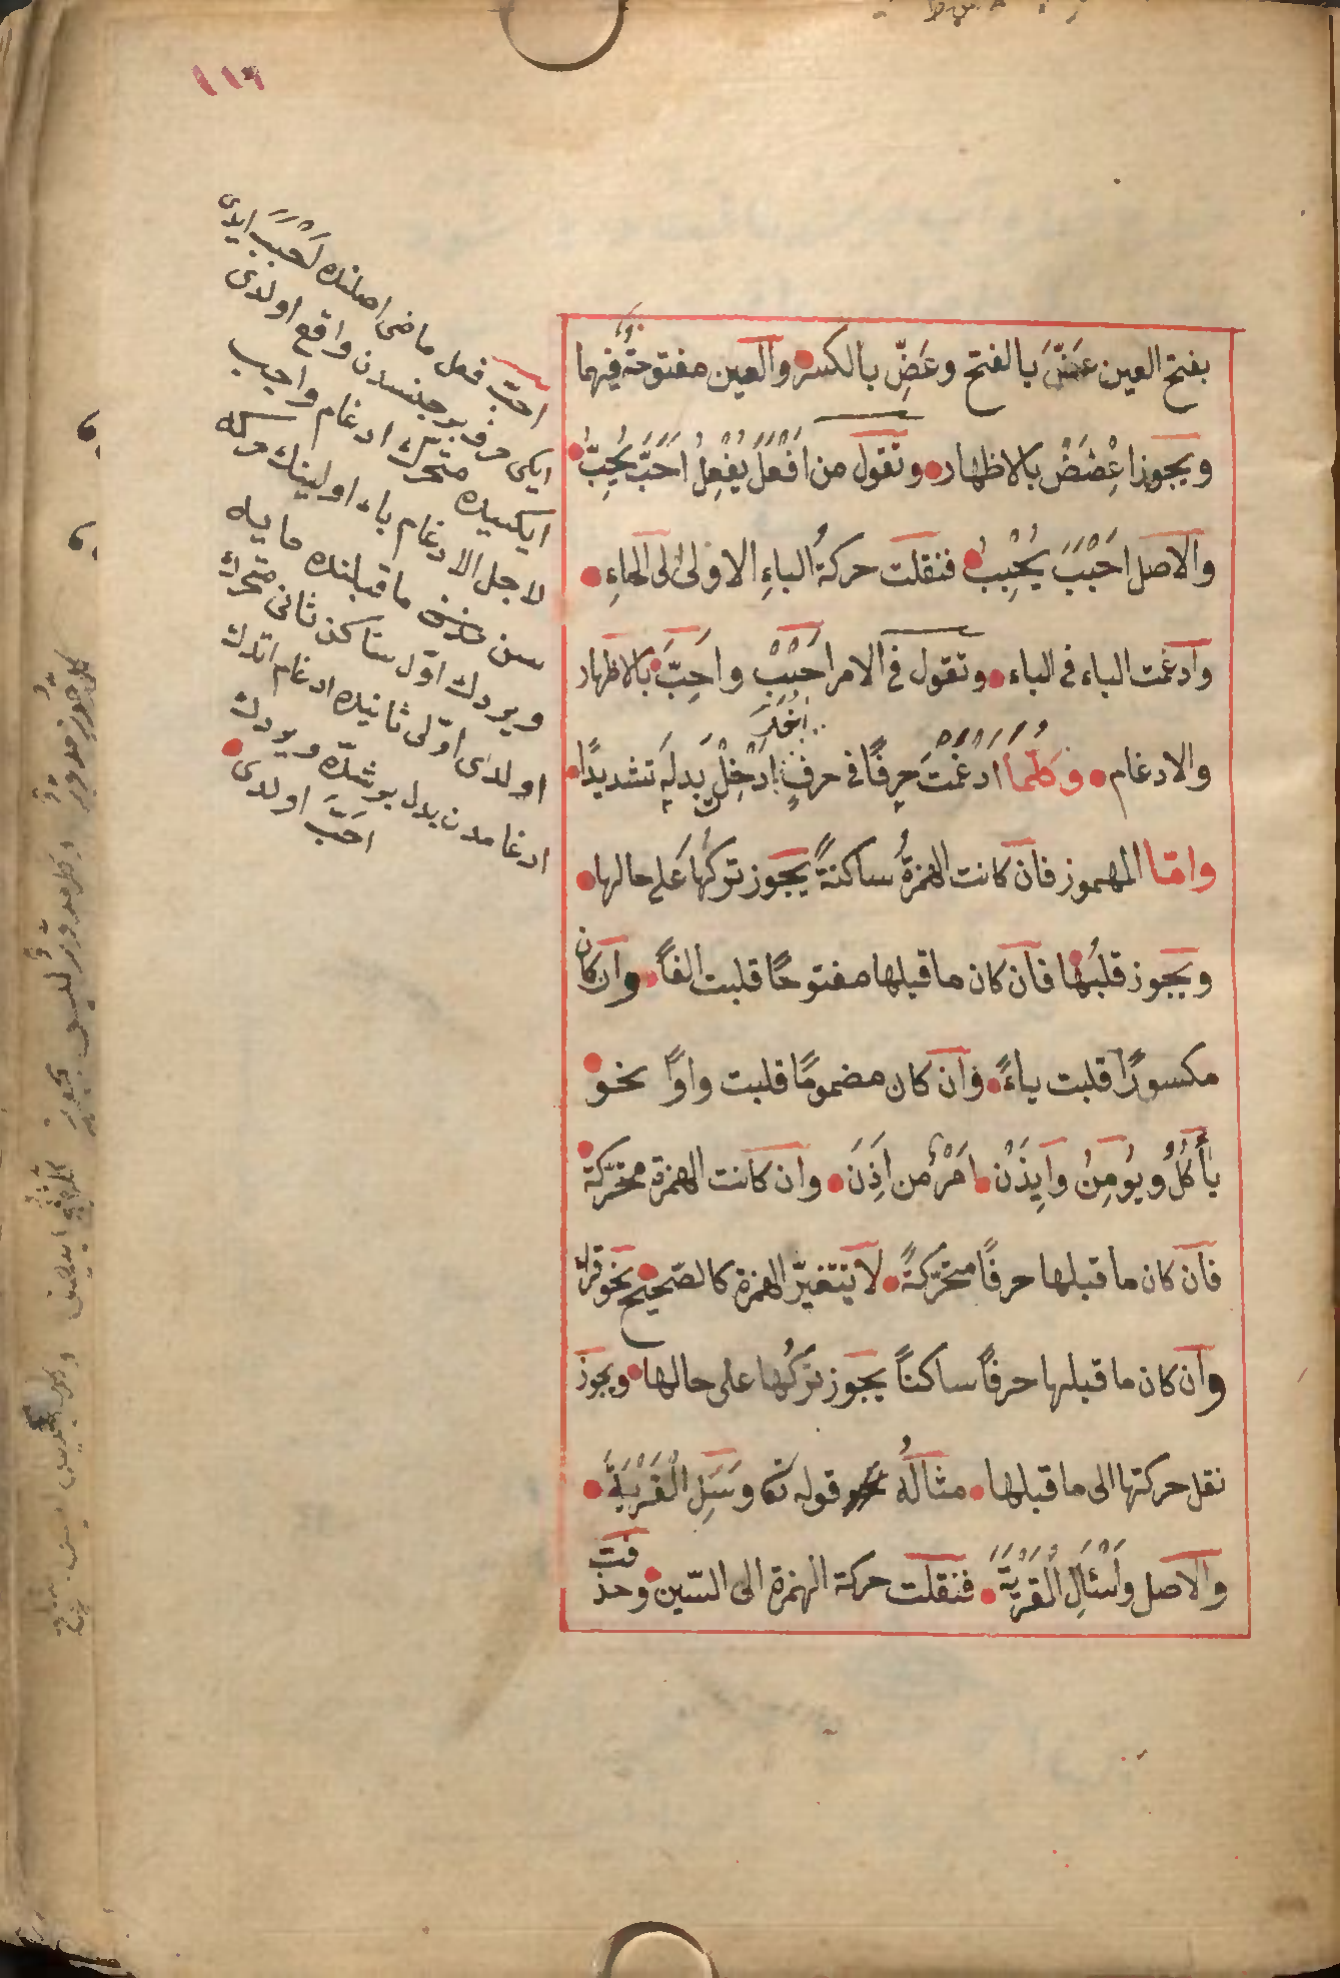 ١١٦
بفتح العين عَضَّ بالفتح وعَضِّ بالكسر والعين مفتوحةٌ فيهما
ويجوز اعْضَضْ بالاظهار وتقول من اَفْعَلَ يُفْعِلُ اَحَبَّ يُحِبُّ
والاصل اَحْبَبَ يُحْبِبُ فنقلت حركةُ الباءِ الاولىٰ الى الحاءِ
وادغمت الباء فى الباء وتقول فى الامر اَحْبِبْ واَحِبَّ بالاظهار
والادغام وكلّما اَدْغَمْتَ حرفًا فى حرفٍ اَدْخِلْ بَدلَهِ تشديدًا
وامّا المهموز فان كانت الهمزةُ ساكنةً يجوز تركُها عَلى حالها
ويجوز قلبُها فان كان ما قبلها مفتوحًا قلبت الفاً وان كان
مكسورًا قلبت ياءً وان كان مضمومًا قلبت واوًا نحو
يأكُلُ ويُومِنُ وَاِيذَنْ امْرٌ من اَذِنَ وان كانت الهمزة متحرّكة
فان كان ما قبلها حرفًا متحرّكةً لا يتغيّر الهمزة كالصّحيح نحو قرأ
وان كان ما قبلها حرفاً ساكناً يجوز تركُها على حالها ويجوز
نقل حركتها الى ما قبلها مثالُهُ قوله تعا وَسَلِ الْقَرْيَةَ
والاصل وَاسْئَلِ الْقَرْيَةَ فنقلت حركة الهمزة الى السّين وحذفت
احبّ فعل ماضى اصلنده اَحْبَبَ ايدى
ايكى حرف بر جنسدن واقع اولدى
ايكسيده متحرك ادغام واجب
لاجل الادغام باء اولينك حركه
سن ما قبلنده حا يه
ويردك اوّل ساكن ثانى متحرك
اولدى اوّلى ثانيده ادغام ايتدك
ادغامدن بدل بر شدّه ويردك
احَبَّ اولدى